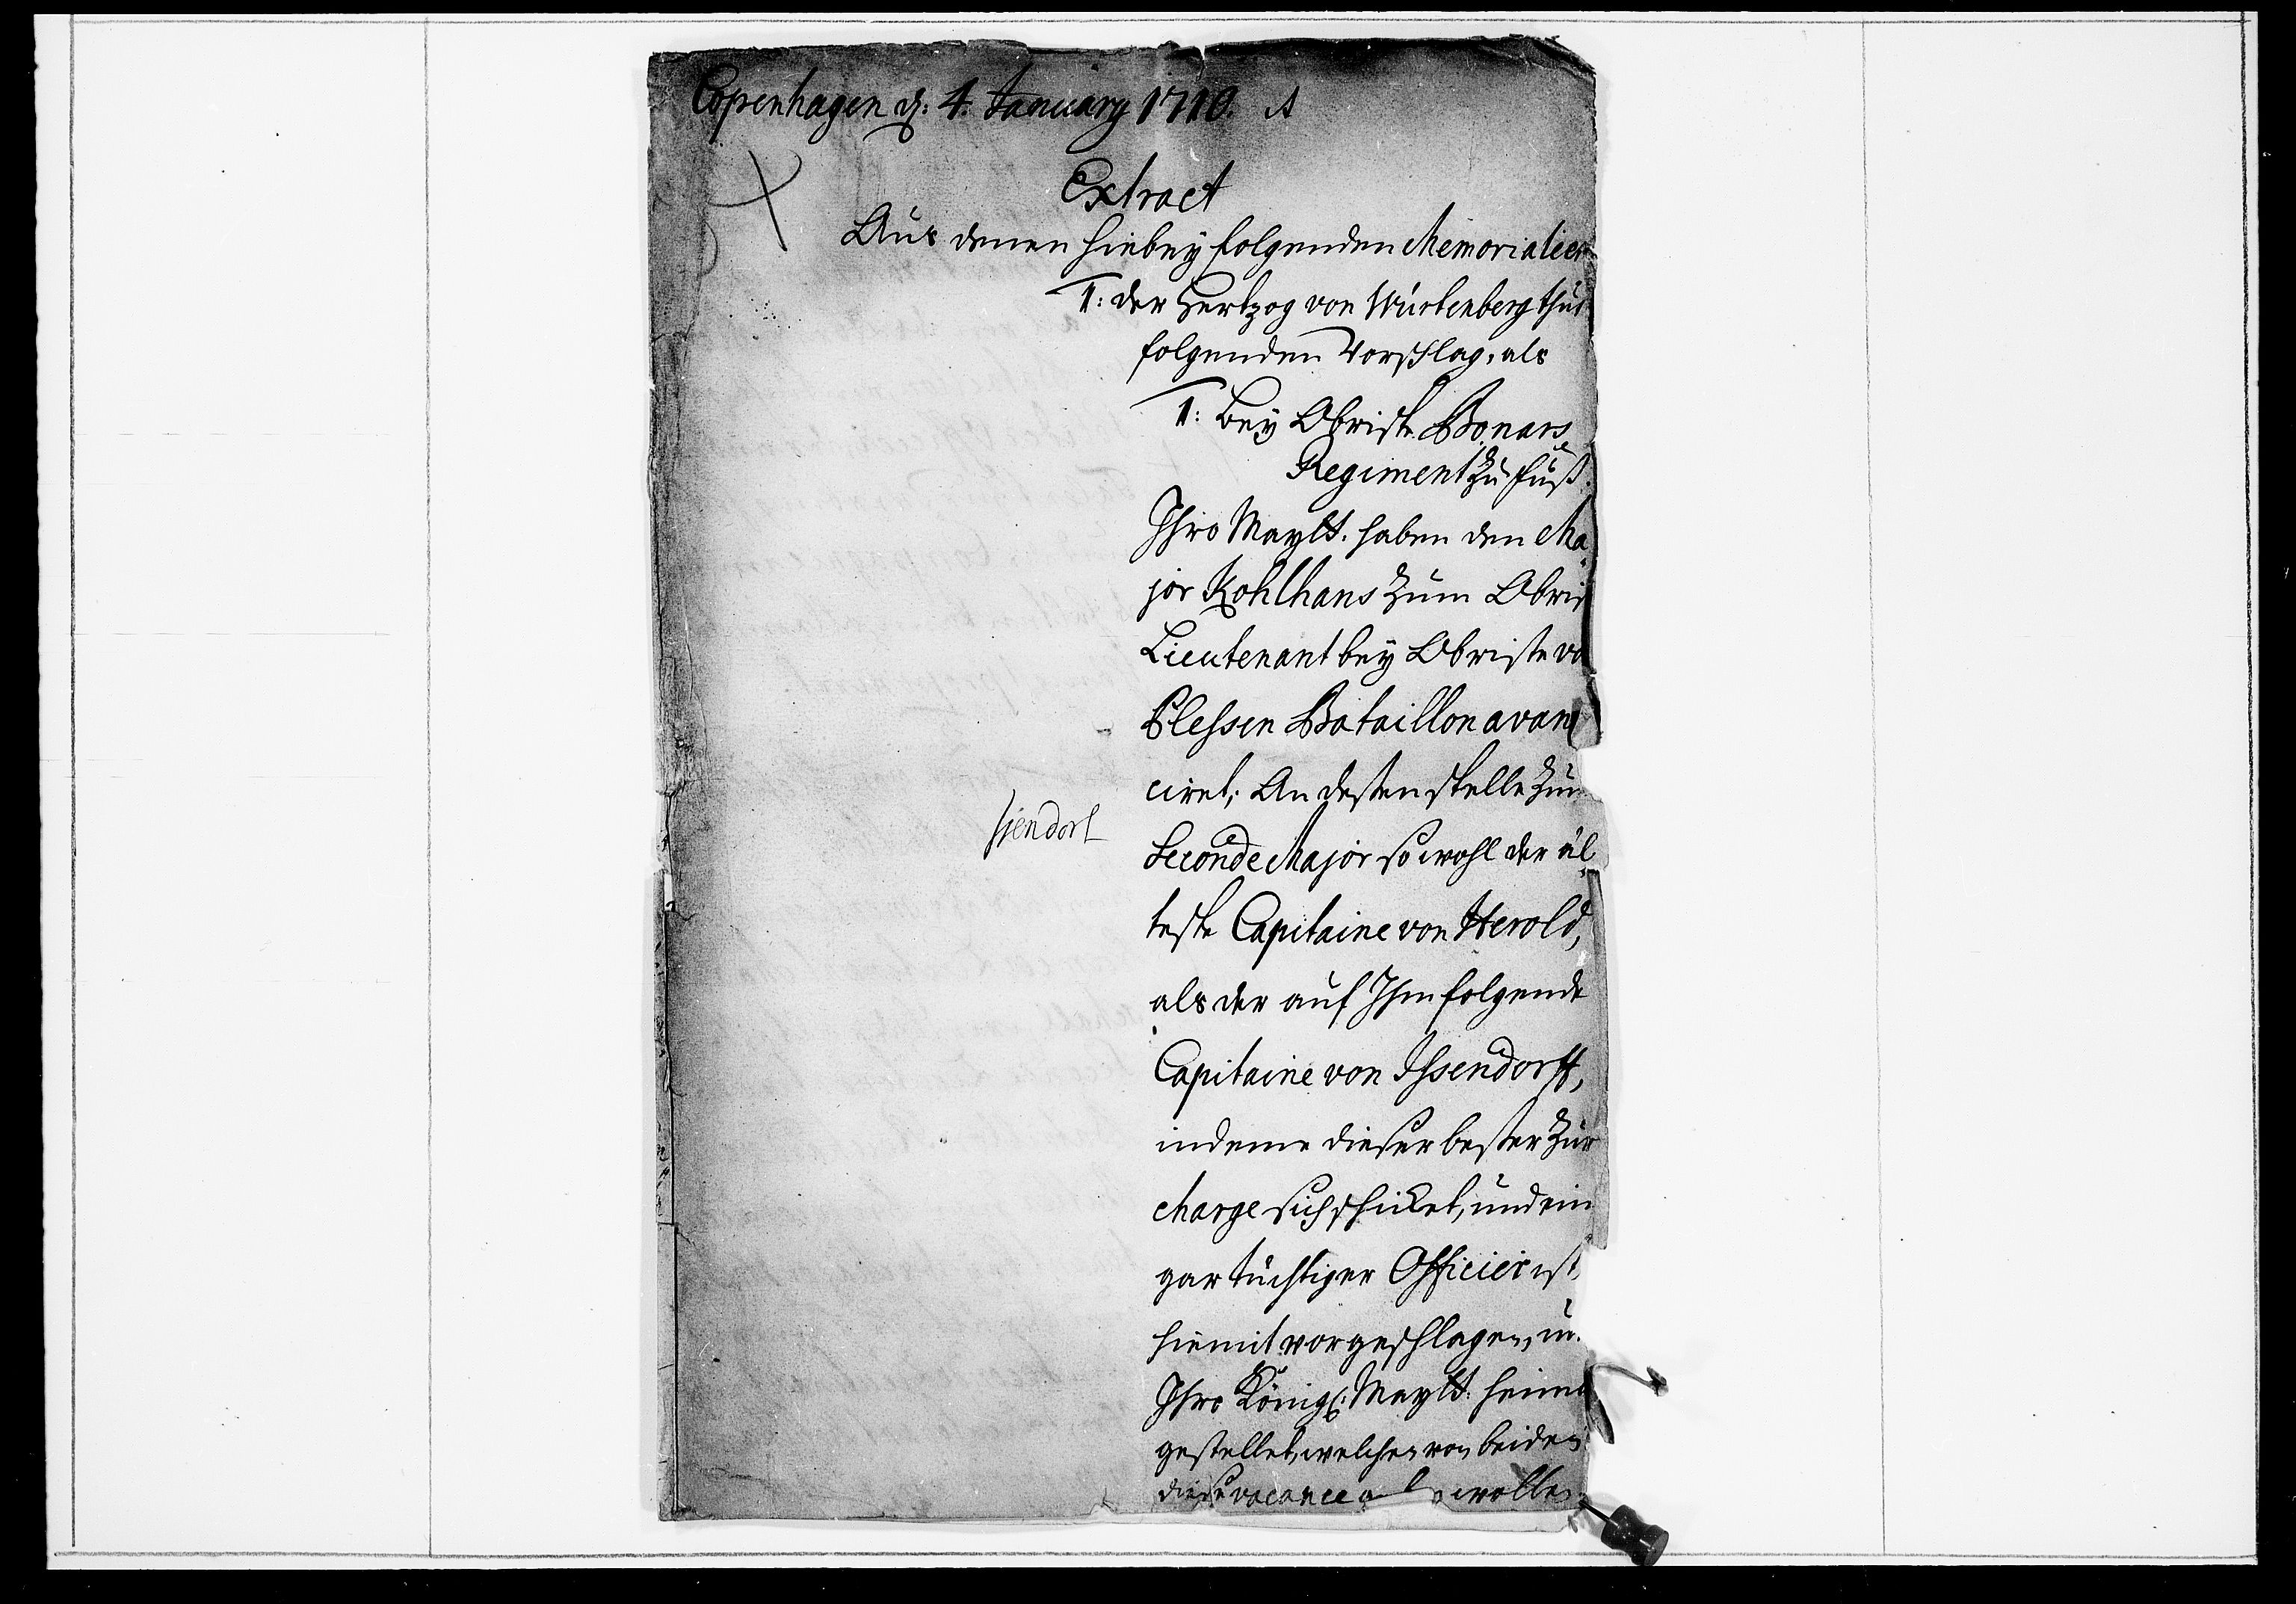 Copenhagen d: 4. January 1710. A
Extract
Aus denen hiebey folgenden Memorialien
1: der Hertzog von Würtenberg thut
folgenden Vorschlag, als
1: Bey Obriste Bonars
Regiment zu Fuß.
Ihro Maytt. haben den Ma¬
jor Kohlhans zum Obrist
Lieutenant bey Obriste von
Plessen Bataillon avan
ciret; An dessen stelle zum
Seconde Major so wohl der äl¬
teste Capitaine von Herold,
als der auf Ihm folgende
Capitaine von Issendorff,
Issendorf
indeme dieser bester zur
charge sich schicket, und ein
gar tüchtiger Officier ist,
hiemit vorgeschlagen, u.
Ihro Königl: Maytt: heim
gestellet, welchen von beiden
diese vacance wollen